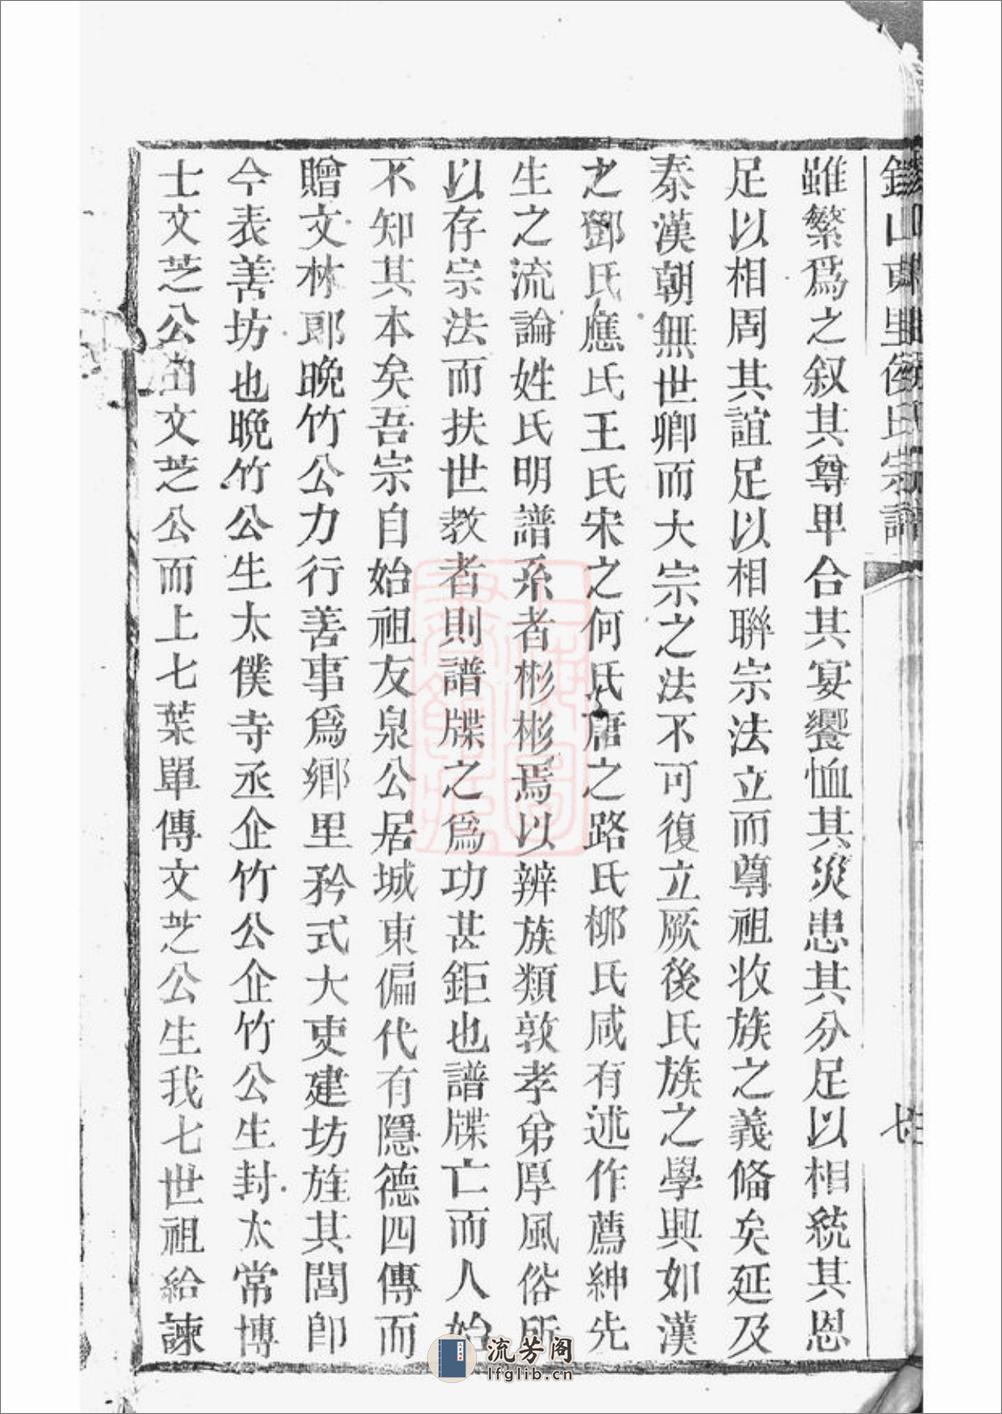 山東里侯氏宗譜
雖繁爲之叙其尊卑合其宴饗恤其災患其分足以相統其恩
足以相周其誼足以相聯宗法立而尊祖收族之義備矣延及
秦漢朝無世卿而大宗之法不可復立厥後氏族之學興如漢
之鄧氏應氏王氏宋之何氏唐之路氏桞氏咸有述作薦紳先
生之流論姓氏明譜系者彬彬焉以辨族類敦孝弟厚風俗所
以存宗法而扶世教者則譜牒之爲功甚鉅也譜牒亡而人始
不知其本矣吾宗自始祖友泉公居城東偏代有隱德四傳而
贈文林郎晚竹公力行善事爲鄉里矜式大吏建坊旌其閭卽
今表善坊也晚竹公生太僕寺丞企竹公企竹公生封太常博
士文芝公由文芝公而上七葉單傳文芝公生我七世祖給諫
流芳阁
lfglib.cn